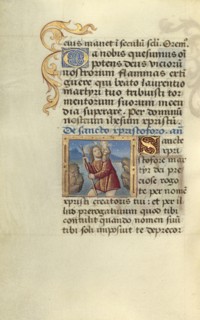 eius manet in seculum seculi. Orem.
Da nobis quesumus om
potens deus vitiorum
nostrorum flammas exti
guere qui beato laurentio
martyri tuo tribuisti tor
mentorum suorum incen
dia superare. Per dominum
nostrum ihesum xpristum.
De sancto xpristoforo. an
Sancte
xpri
stofore mar
tyr dei pre
ciose rogo
te per nomen
xpristi creatoris tui: et per il
lud prerogativum quod tibi
contulit quando nomen suum
tibi soli imposuit te deprecor